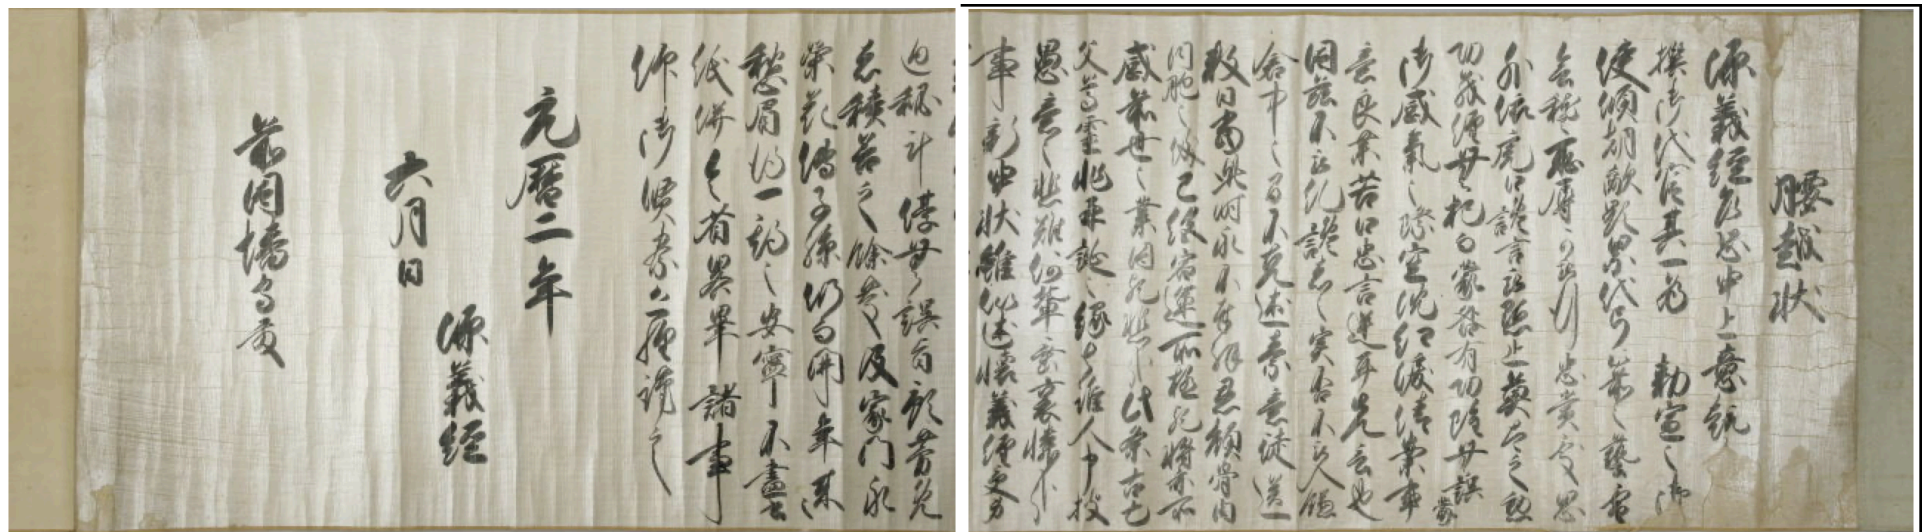 腰越状
源義経乍恐申上意趣
撰御代官其一為　勅宣之御
使傾朝敵顕累代弓箭之藝雪
会稽之恥辱可被行忠賞処思
外依虎口讒言被黙止莫太之勲
功義経無犯而蒙咎有功雖無誤蒙
御感氣之際空沈紅涙倩案事
意良薬苦口忠言逆耳先言也
因茲不被糺讒者之実否不被入鎌
倉中之間不克述素意徒送
数日当此時永不奉拝恩顔骨肉
同胞之儀已絶宿運所極歟将亦
感前世之業因歟悲哉此条故亡
父尊霊非再誕之縁者誰人申披
愚意之悲難何輩垂哀憐哉
事新申状雖似述懐義経受身
廻秘計優無之誤旨預芳免
者積善之餘慶及家門永
栄花傳子孫仍而開年来
愁眉得一期之安寧不盡書
紙併令省畧畢諸事
仰御賢察之処謹言
元暦二年
六月日
源義経
前因幡守殿